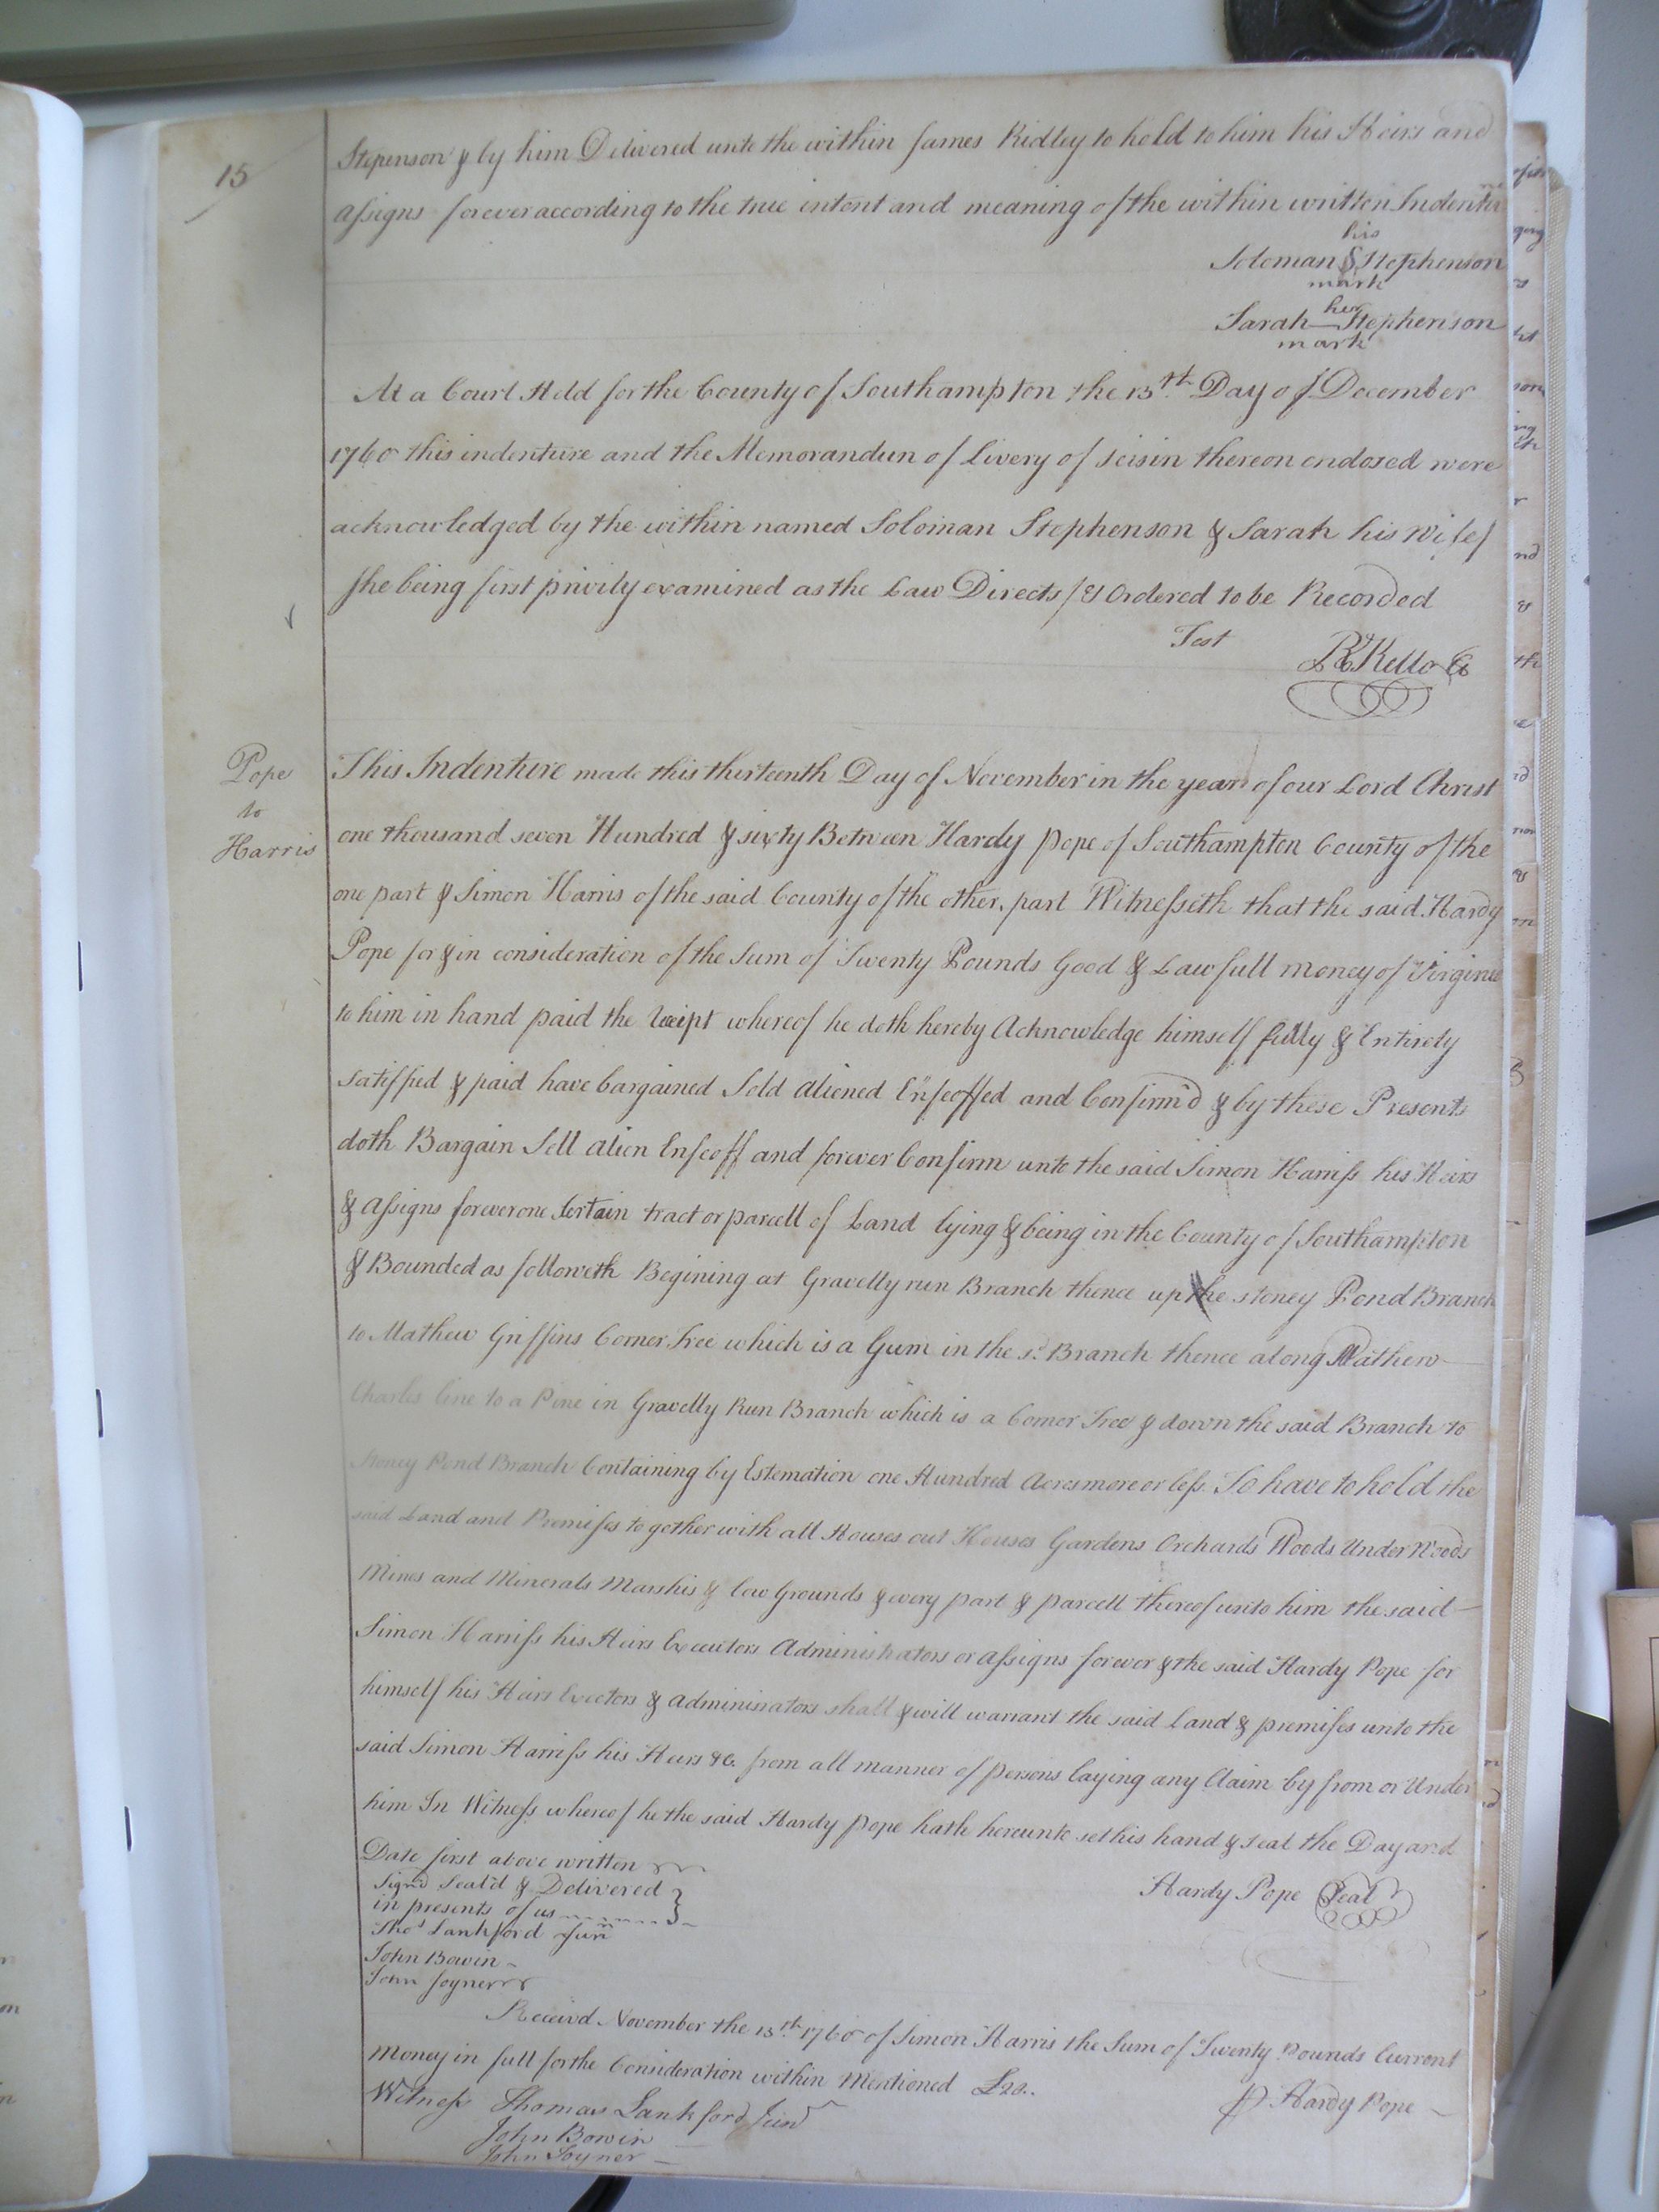 15
Stepenson & by him Delivered unto the within James Ridley to hold to him his Heirs and
assigns forever according to the true intent and meaning of the within written Indenture
his
Soloman S Stephenson
mark
her
Sarah — Stephenson
mark
At a Court Held for the County of Southampton the 13th Day of December
1760 this indenture and the Memorandun of Livery of seisin thereon endosed were
acknowledged by the within named Soloman Stephenson & Sarah his Wife/
She being first privily examined as the Law Directs/ & Ordered to be Recorded
Test R Kello Cl
Pope
to
Harris
This Indenture made this thirteenth Day of November in the year of our Lord Christ
one thousand seven Hundred & sixty Between Hardy Pope of Southampton County of the
one part & Simon Harris of the said County of the other part Witnesseth that the said Hardy
Pope for & in consideration of the Sum of Twenty Pounds Good & Lawfull money of Virginia
to him in hand paid the Receipt whereof he doth hereby Acknowledge himself fully & Entirely
satisfied & paid have bargained Sold aliened Enfeoffed and Confirm'd & by these Presents
doth Bargain Sell alien Enfeoff and forever Confirm unto the said Simon Harriss his Heirs
& assigns forever one Certain tract or parcell of Land lying & being in the County of Southampton
& Bounded as followeth Begining at Gravelly run Branch thence up the stoney Pond Branch
to Mathew Griffins Corner Tree which is a Gum in the sd. Branch thence along Mathew
Charles line to a Pine in Gravelly Run Branch which is a Corner Tree & down the said Branch to
Stoney Pond Branch Containing by Estemation one Hundred Acres more or less. To have to hold the
said Land and Premises to gether with all Houses out Houses Gardens Orchards Woods Under Woods
Mines and Minerals Marshis & low Grounds & every part & parcell thereof unto him the said
Simon Harriss his Heirs Executors Administrators or assigns forever & the said Hardy Pope for
himself his Heirs Exectors & administrators shall & will warrant the said Land & premises unto the
said Simon Harriss his Heirs &c. from all manner of persons laying any Claim by from or Under
him In Witness whereof he the said Hardy Pope hath hereunto set his hand & seal the Day and
Date first above written
Sign'd Seal'd & Delivered
in presents of us
Hardy Pope Seal
Thos Lankford Junr
John Bowin
John Joyner
Receivd November the 13th 1760 of Simon Harris the Sum of Twenty Pounds Current
Money in full for the Consideration within Mentioned £20..
Witness Thomas Lankford Junr
P Hardy Pope
John Bowin
John Joyner